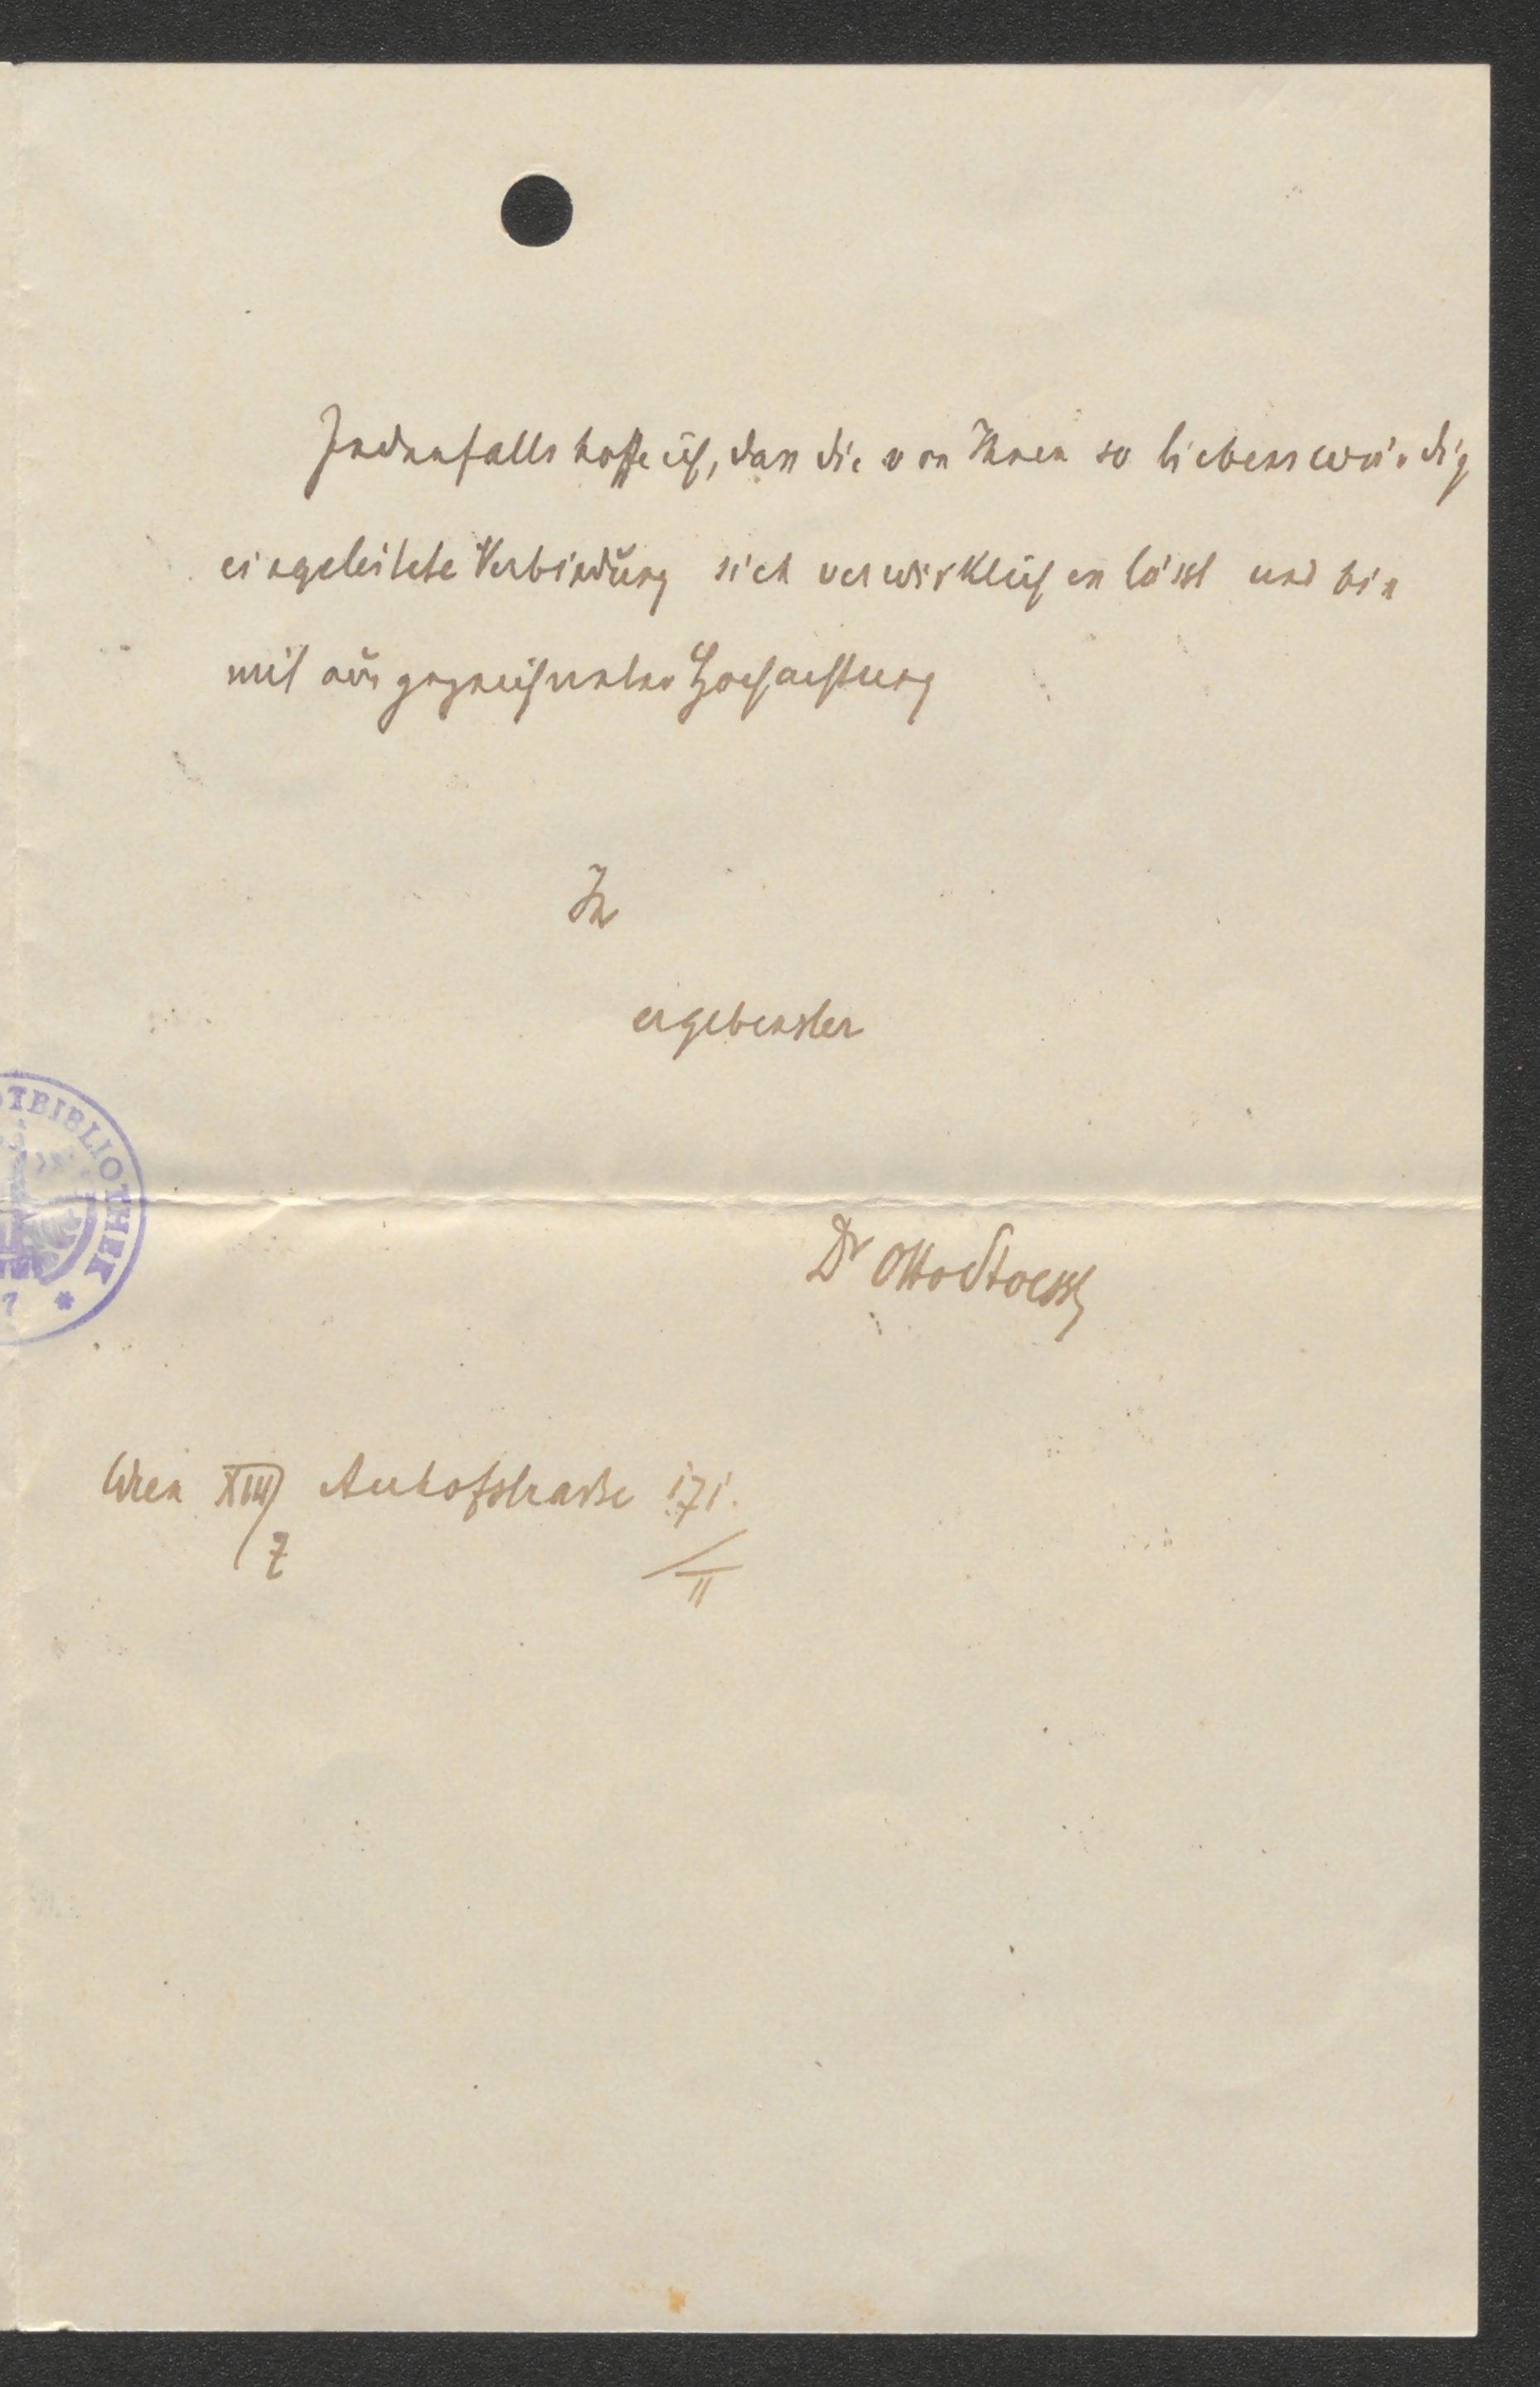 Jedenfalls hoffe ich, dass die von Ihnen so liebenswürdig
eingeleitete Verbindung sich verwirklichen lässt und bin
mit ausgezeichneter Hochachtung
Ihr
ergebenster
TBIBLIOTHEK
7 *
Dr Otto Stoessl
Wien XIII/7 Auhofstrasse 171.
II